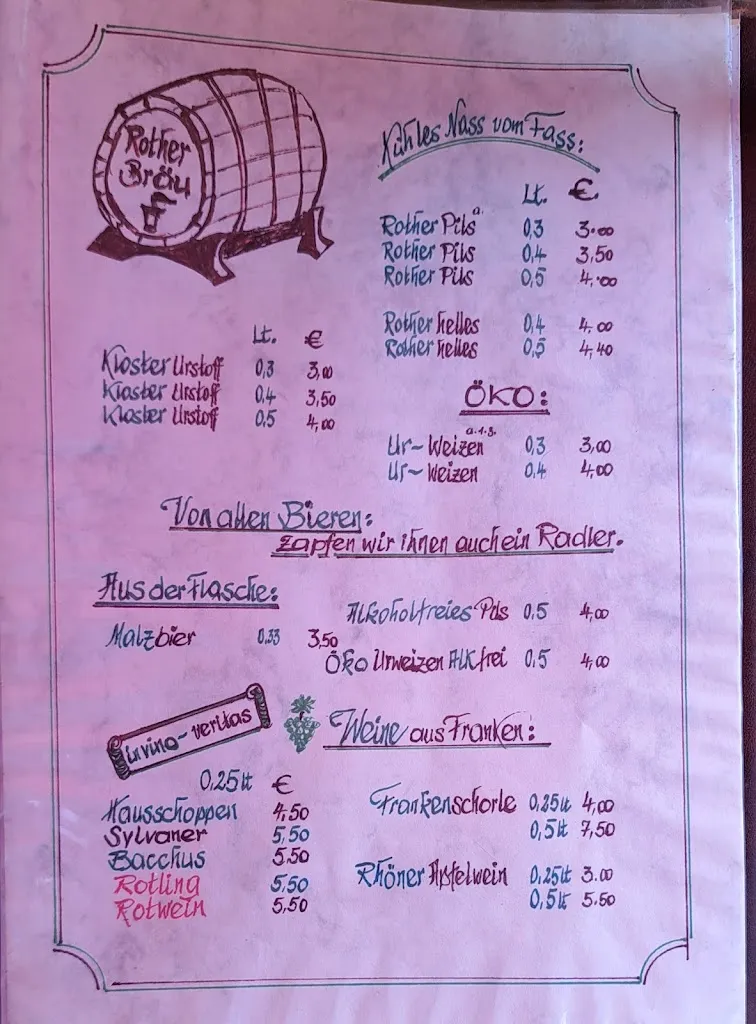 Rother
Bräu
Kühles Nass vom Fass:
Lt. €
Rother Pils a 0,3 3.00
Rother Pils 0,4 3,50
Rother Pils 0,5 4,00
Rother helles 0,4 4,00
Rother helles 0,5 4,40
Lt. €
Kloster Urstoff 0,3 3,00
Kloster Urstoff 0,4 3,50
Kloster Urstoff 0,5 4,00
ÖKO:
Ur~Weizen a.1.3. 0,3 3,00
Ur~Weizen 0,4 4,00
Von allen Bieren:
zapfen wir ihnen auch ein Radler.
Aus der Flasche:
Malzbier 0,33 3,50
Alkoholfreies Pils 0,5 4,00
Öko Urweizen Alkfrei 0,5 4,00
in vino~veritas
Weine aus Franken:
0,25lt €
Hausschoppen 4,50
Sylvaner 5,50
Bacchus 5,50
Rotling 5,50
Rotwein 5,50
Frankenschorle 0,25lt 4,00
0,5lt 7,50
Rhöner Apfelwein 0,25lt 3.00
0,5lt 5.50